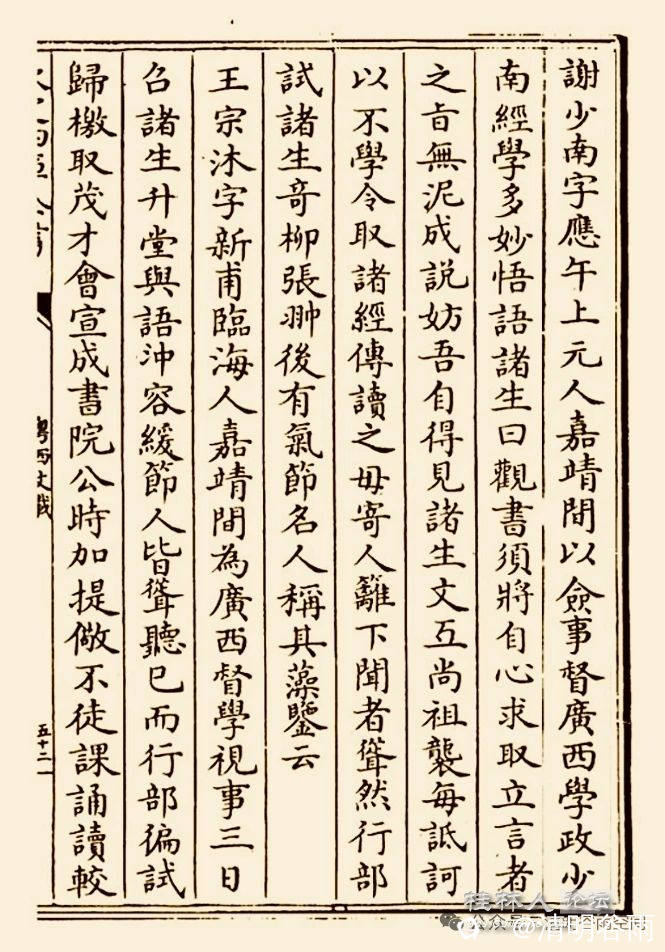 謝少南字應午上元人嘉靖間以僉事督廣西學政少
南經學多妙悟語諸生曰觀書須將自心求取立言者
之旨無泥成説妨吾自得見諸生文互尚祖襲每詆訶
以不學令取諸經傳讀之毋寄人籬下聞者聳然行部
試諸生竒柳張翀後有氣節名人稱其藻鑒云
王宗沐字新甫臨海人嘉靖間為廣西督學視事三日
召諸生升堂與語沖容緩節人皆聳聽巳而行部徧試
歸檄取茂才會宣成書院公時加提儆不徒課誦讀較
粤西文載
五十二
桂林人论坛